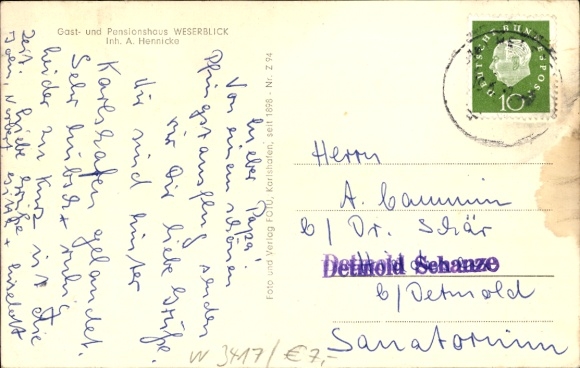 Gast- und Pensionshaus WESERBLICK
Inh. A. Hennicke
Lieber Papa!
Von einem schönen
Pfingstausflug senden
wir Dir liebe Grüße.
Wir sind hinter
Karlshafen gelandet.
Sehr hübsch + ruhig
leider zu kurz ist die
Zeit. Liebe Grüße
Foto und Verlag FOTU, Karlshafen, seit 1898 - Nr. Z 94
DEUTSCHE BUNDESPOST
10
Herrn
A.
b/ Dr. Schär
Detmold Schanze
b/ Detmold
Sanatorium
W 3417/ € 7,-